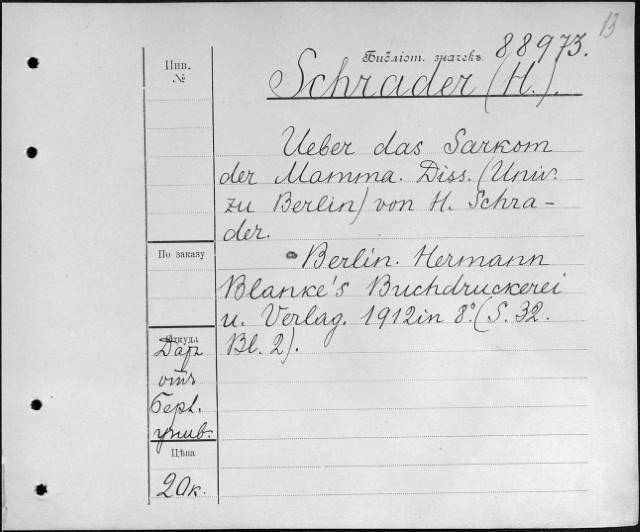 13
Библіот. значекъ 88973.
Инв.
№
Schrader (H.).
Ueber das Sarkom
der Mamma. Diss. (Univ.
zu Berlin) von H. Schra-
der.
По заказу
Berlin. Hermann
Blanke's Buchdruckerei
u. Verlag. 1912 in 8° (S. 32.
Bl. 2).
Откуда
Даръ
отъ
Берл.
унив.
Цѣна
20к.